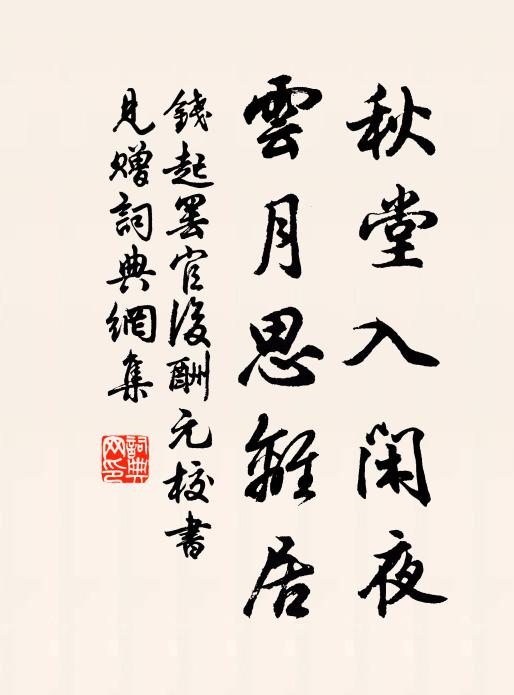 秋堂入閑夜
雲月思離居
錢起罷官後酬元校書
見贈詞典網集
詞典網印